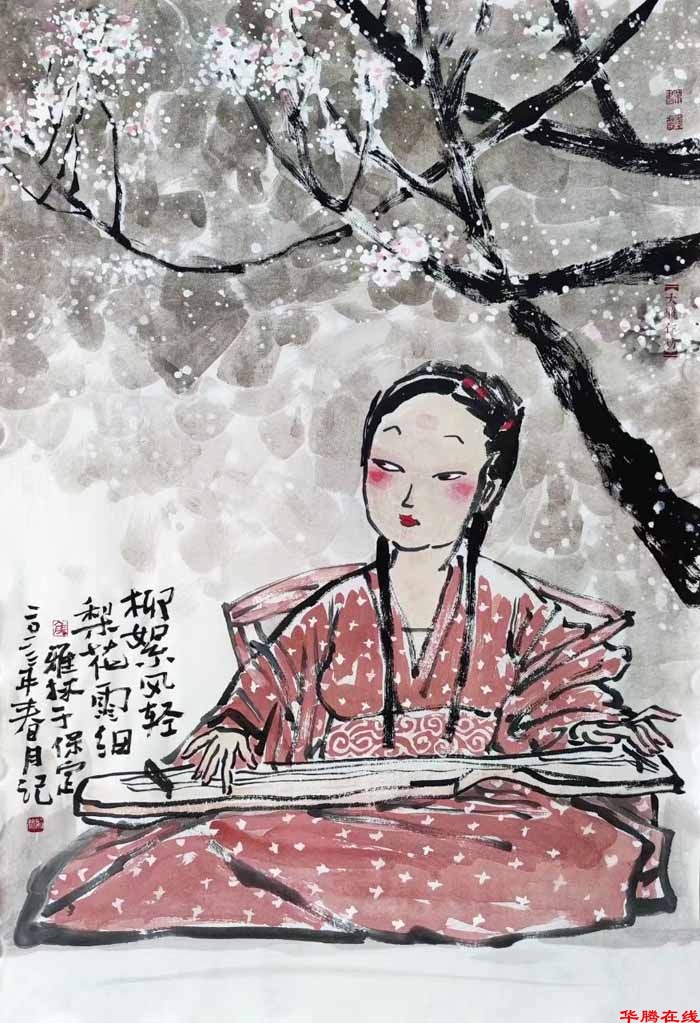 柳絮风轻
梨花雨细
雅林于保定
二〇二二年春月记
华腾在线